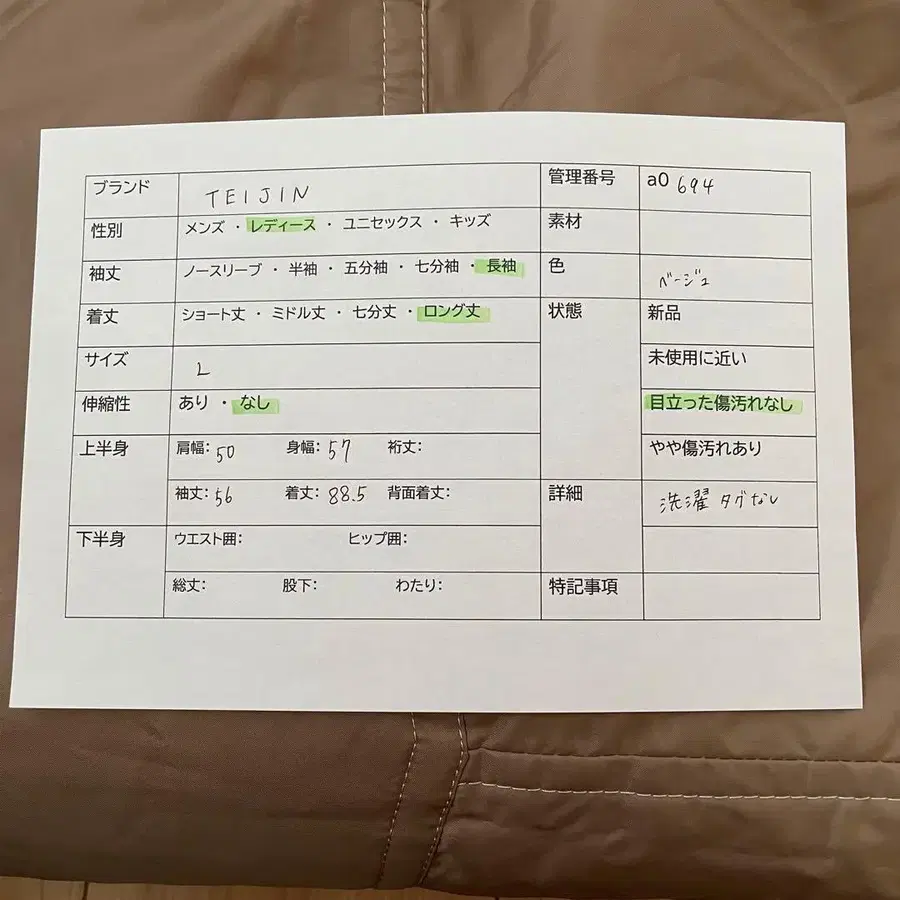 ブランド TEIJIN 管理番号 a0 694
性別 メンズ ・ レディース ・ ユニセックス ・ キッズ 素材
袖丈 ノースリーブ ・ 半袖 ・ 五分袖 ・ 七分袖 ・ 長袖 色 ベージュ
着丈 ショート丈 ・ ミドル丈 ・ 七分丈 ・ ロング丈 状態 新品
サイズ L 未使用に近い
伸縮性 あり ・ なし 目立った傷汚れなし
上半身 肩幅: 50 身幅: 57 裄丈: やや傷汚れあり
袖丈: 56 着丈: 88.5 背面着丈: 詳細 洗濯タグなし
下半身 ウエスト囲: ヒップ囲:
総丈: 股下: わたり: 特記事項